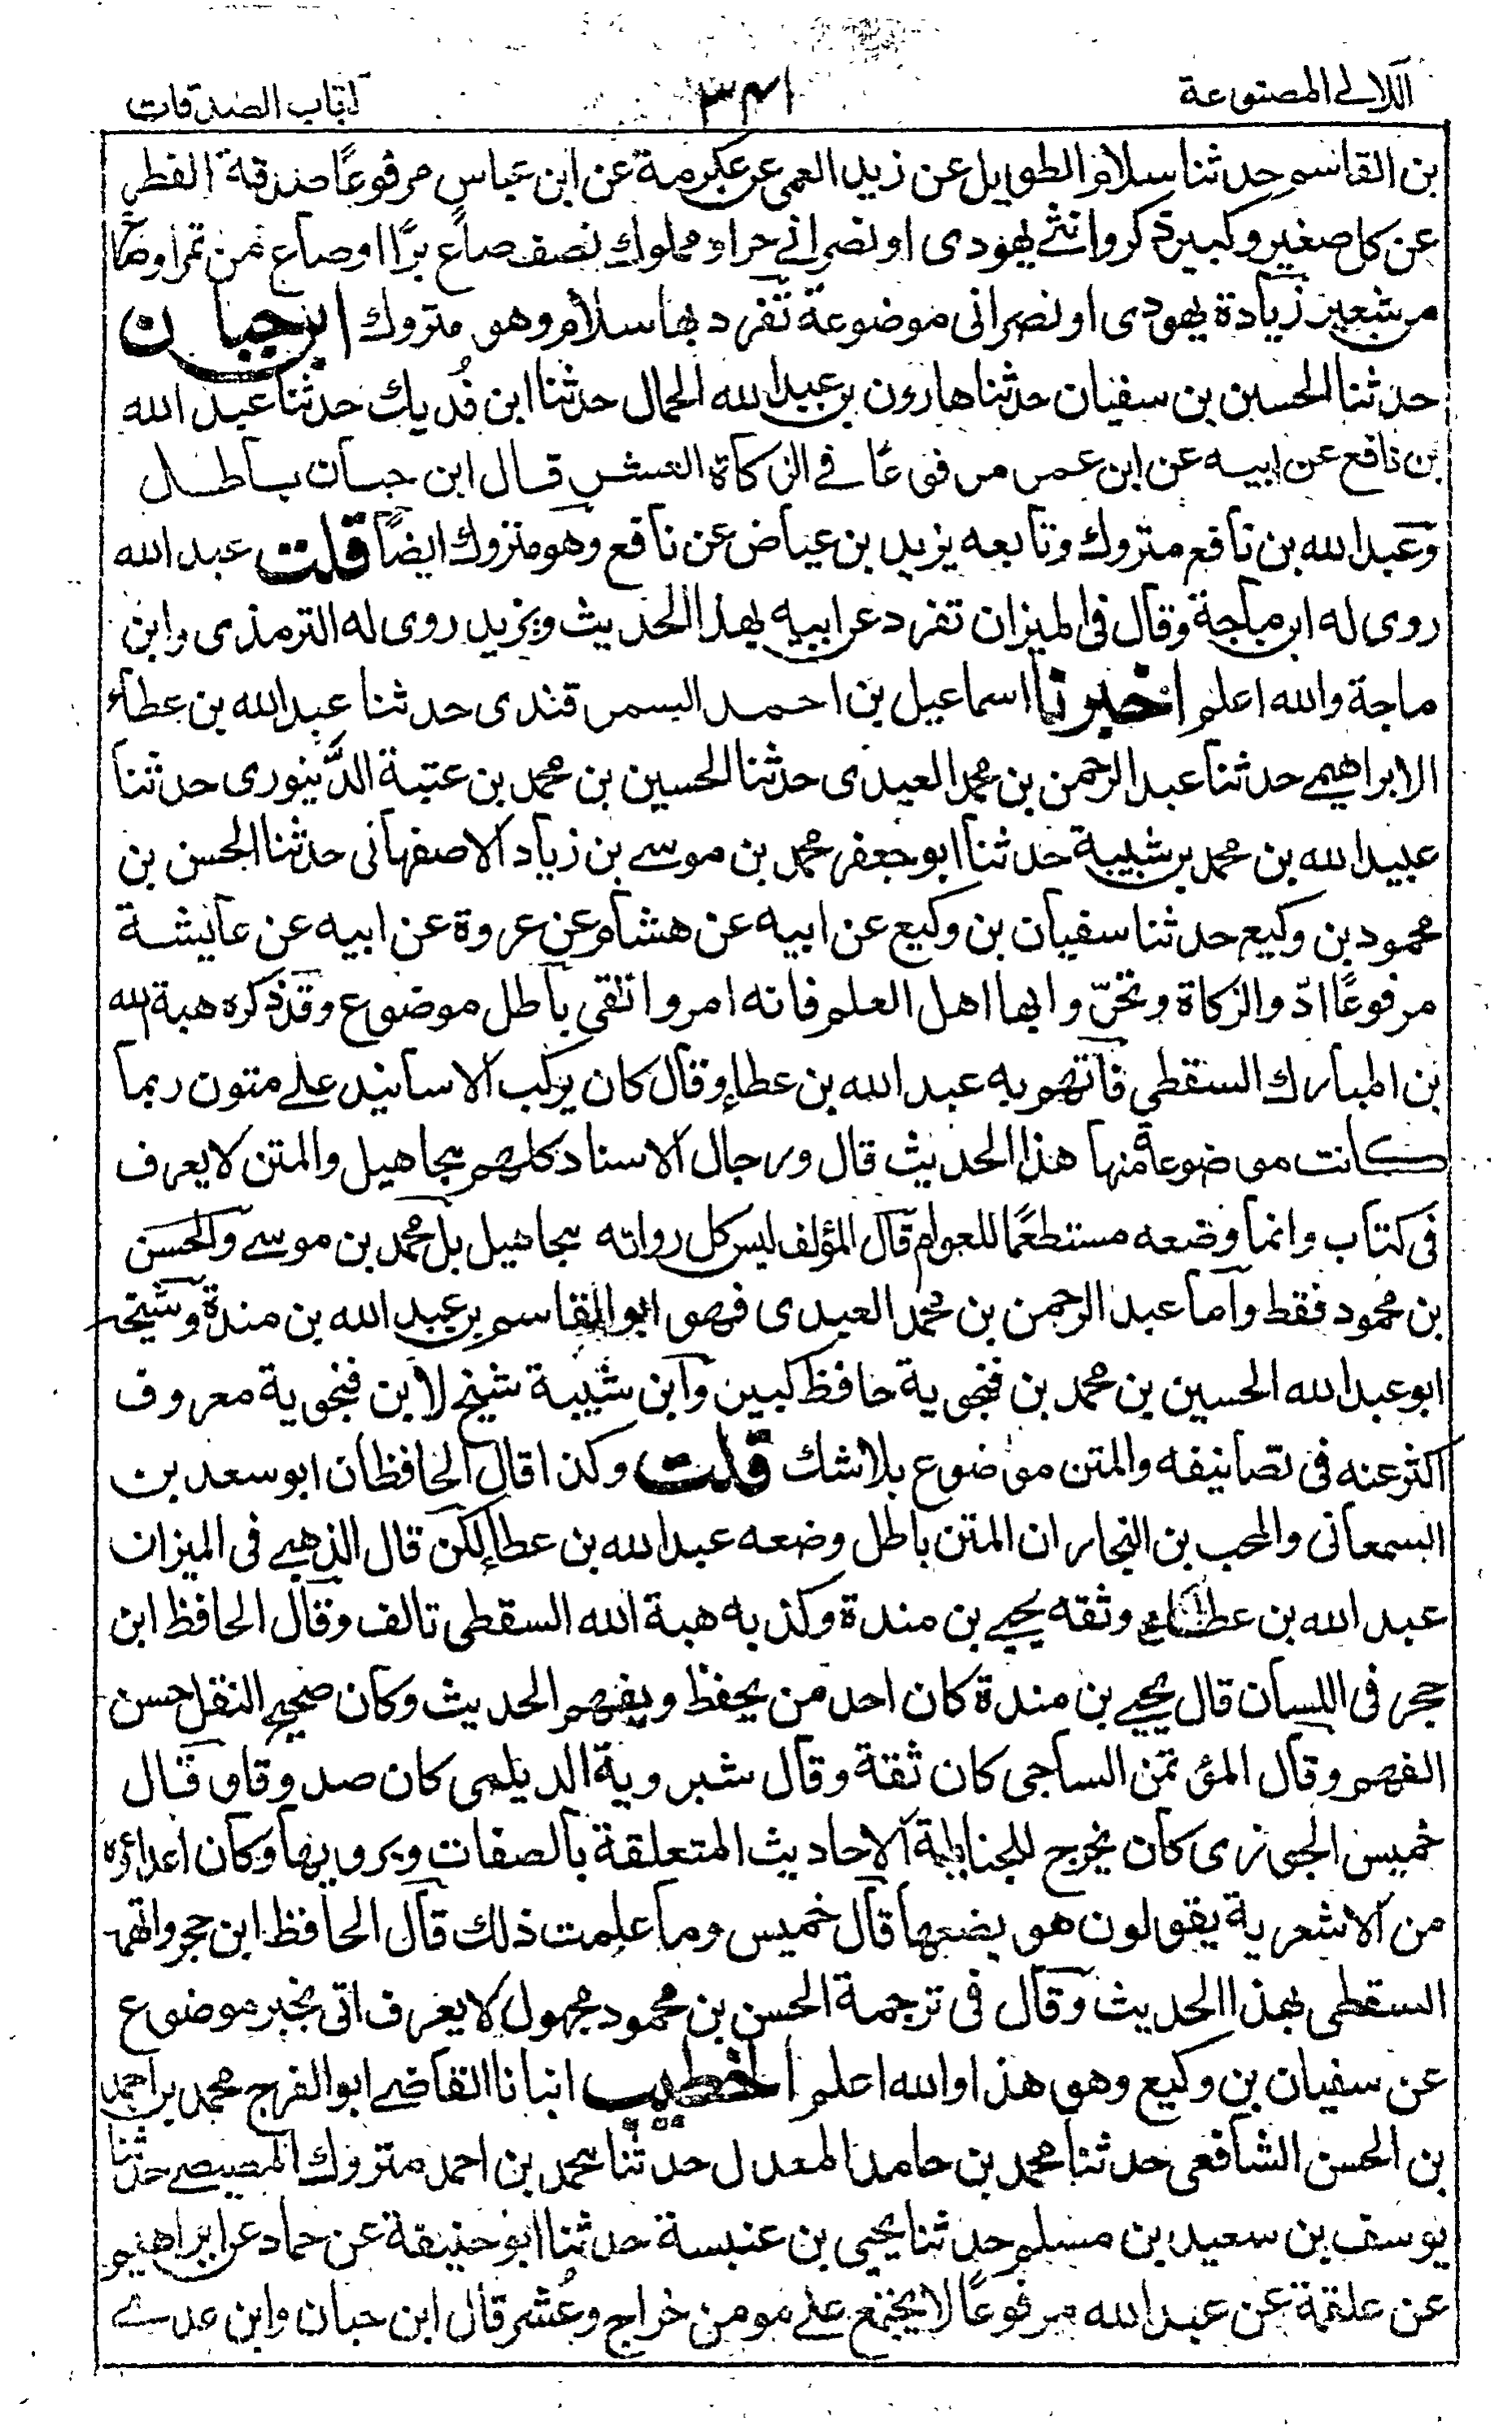 اللالى المصنوعة
٣٤١
كتاب الصدقات
بن القاسم حدثنا سلام الطويل عن زيد العمى عن عكرمة عن ابن عباس مرفوعًا صدقة الفطر
عن كل صغير وكبير ذكر وانثى يهودى او نصرانى حر او مملوك نصف صاع برًّا او صاع من تمر او صاع
من شعير زيادة يهودى او نصرانى موضوعة تفرد بها سلام وهو متروك ابن حبان
حدثنا الحسين بن سفيان حدثنا هارون بن عبد الله الحمال حدثنا ابن فُديك حدثنا عبد الله
بن نافع عن ابيه عن ابن عمر مرفوعًا فى الزكاة العشر قال ابن حبان باطل
وعبد الله بن نافع متروك وتابعه يزيد بن عياض عن نافع وهو متروك ايضًا قلت عبد الله
روى له ابن ماجة وقال فى الميزان تفرد عن ابيه بهذا الحديث ويزيد روى له الترمذى وابن
ماجة والله اعلم اخبرنا اسماعيل بن احمد السمرقندى حدثنا عبد الله بن عطاء
الابراهيمى حدثنا عبد الرحمن بن محمد العبدى حدثنا الحسين بن محمد بن عتبة الدَّينورى حدثنا
عبيد الله بن محمد بن شيبة حدثنا ابو جعفر محمد بن موسى بن زياد الاصفهانى حدثنا الحسن بن
محمود بن وكيع حدثنا سفيان بن وكيع عن ابيه عن هشام عن عروة عن ابيه عن عائشة
مرفوعًا ادّوا الزكاة وتحرّوا بها اهل العلم فانه امر واتقى باطل موضوع وقد ذكره هبة الله
بن المبارك السقطى فاتهم به عبد الله بن عطاء وقال كان يركب الاسانيد على متون ربما
كانت موضوعة منها هذا الحديث قال ورجال الاسناد كلهم مجاهيل والمتن لا يعرف
فى كتاب وانما وضعه مستطعمًا للعوام قال المؤلف ليس كل رواته بمجاهيل بل محمد بن موسى والحسن
بن محمود فقط واما عبد الرحمن بن محمد العبدى فهو ابو القاسم بن عبد الله بن مندة وشيخه
ابو عبد الله الحسين بن محمد بن فنجوية حافظ كبير وابن شيبة شيخ لابن فنجوية معروف
اكثر عنه فى تصانيفه والمتن موضوع بلا شك قلت وكذا قال الحافظان ابو سعد بن
السمعانى والمحب بن النجار ان المتن باطل وضعه عبد الله بن عطاء لكن قال الذهبى فى الميزان
عبد الله بن عطاء وثقه يحيى بن مندة وكذبه هبة الله السقطى تالف وقال الحافظ ابن
حجر فى اللسان قال يحيى بن مندة كان احد من يحفظ ويفهم الحديث وكان صحيح النقل حسن
الفهم وقال المؤتمن الساجى كان ثقة وقال شيروية الديلمى كان صدوقا وقال
خميس الجوزى كان يخرج للحنابلة الاحاديث المتعلقة بالصفات ويرويها وكان اعداؤه
من الاشعرية يقولون هو يضعها قال خميس وما علمت ذلك قال الحافظ ابن حجر واتهمه
السقطى بهذا الحديث وقال فى ترجمة الحسن بن محمود مجهول لا يعرف اتى بخبر موضوع
عن سفيان بن وكيع وهو هذا والله اعلم الخطيب انبانا القاضى ابو الفرج محمد بن احمد
بن الحسن الشافعى حدثنا محمد بن حامد المعدل حدثنا محمد بن احمد متروك المصيصى حدثنا
يوسف بن سعيد بن مسلم حدثنا يحيى بن عنبسة حدثنا ابو حنيفة عن حماد عن ابراهيم
عن علقمة عن عبد الله مرفوعًا لا يجتمع على مومن خراج وعُشر قال ابن حبان وابن عدى